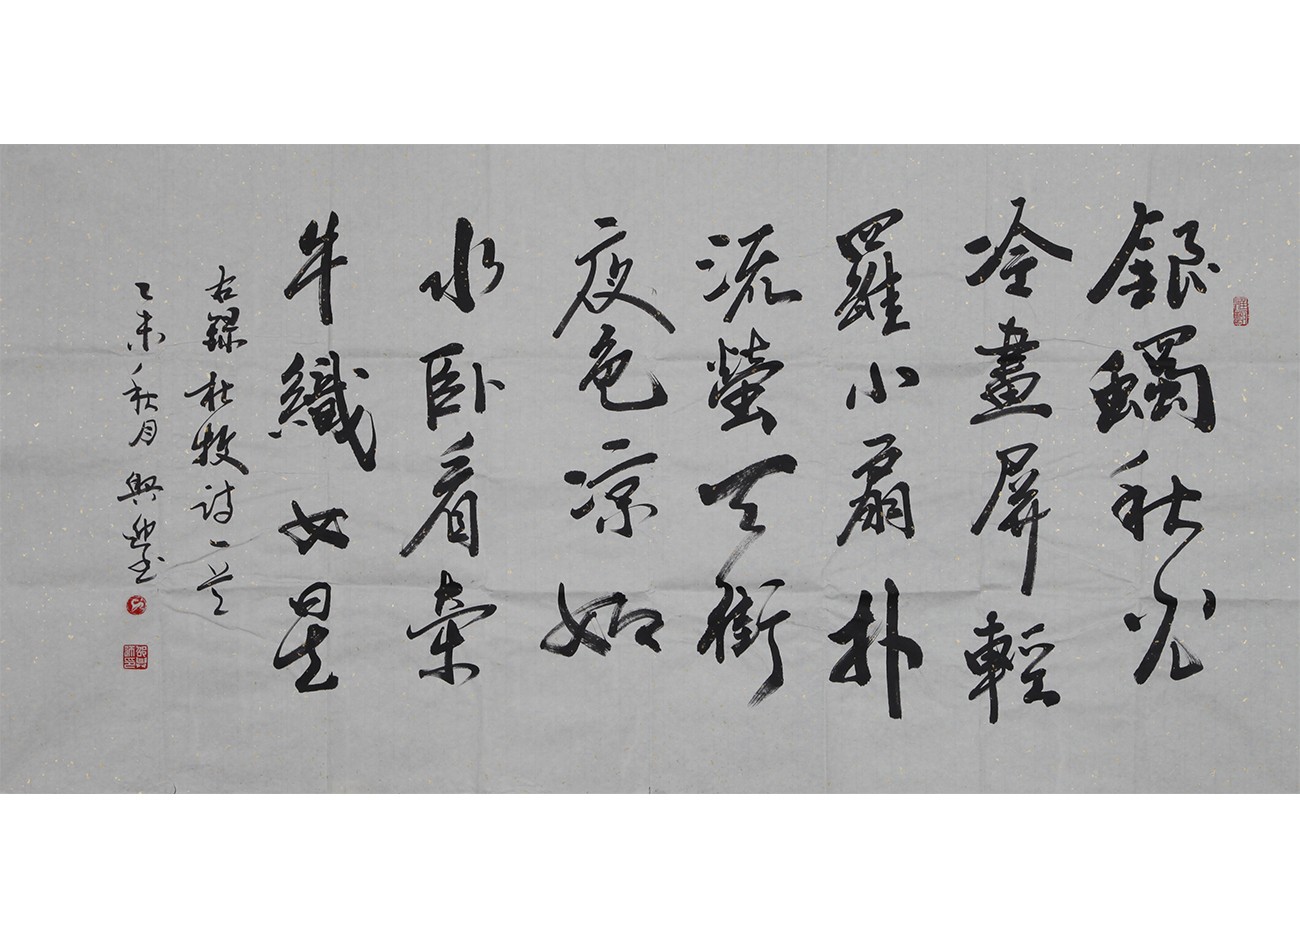 銀燭秋光
冷畫屏輕
羅小扇扑
流螢天街
夜色凉如
水卧看牽
牛織女星
右録杜牧詩一首
乙未秋月興